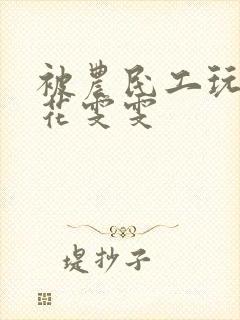 被农民工玩
花雯雯
堤抄子